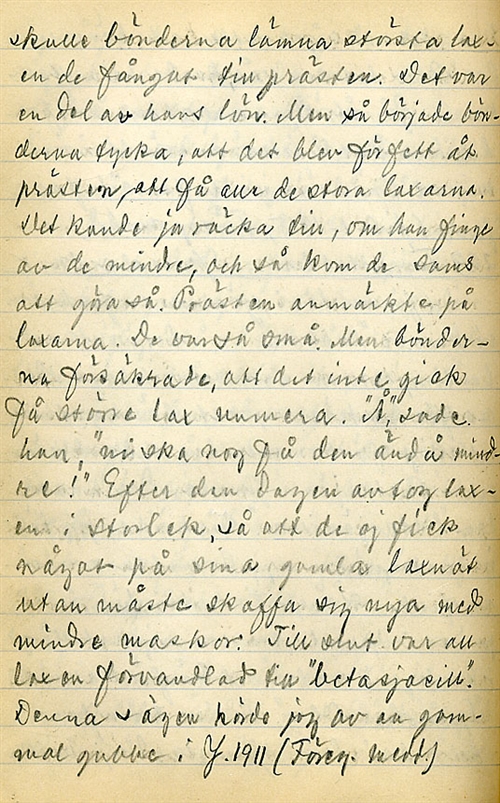 skulle bönderna lämna största lax-
en de fångat till prästen. Det var
en del av hans lön. Men så började bön-
derna tycka, att det blev för fett åt
prästen, att få all de stora laxarna.
Det kunde ju räcka till, om han finge
av de mindre, och så kom de sams
att göra så. Prästen anmärkte på
laxarna. De var så små. Men bönder-
na försäkrade, att det inte gick
få större lax numera. "Å", sade
han, "ni ska nog få den ändå mind-
re!" Efter den dagen avtog lax-
en i storlek, så att de ej fick
något på sina gamla laxnät
utan måste skaffa sig nya med
mindre maskor. Till slut var all
laxen förvandlad till
Denna sägen hörde jag av en gam-
mal gubbe i J. 1911 (Föreg. medd.)